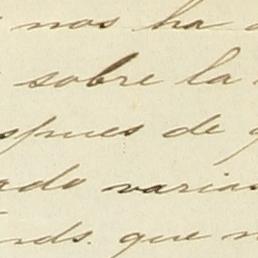 nos ha
sobre la
spues de
ado varias
nds. que